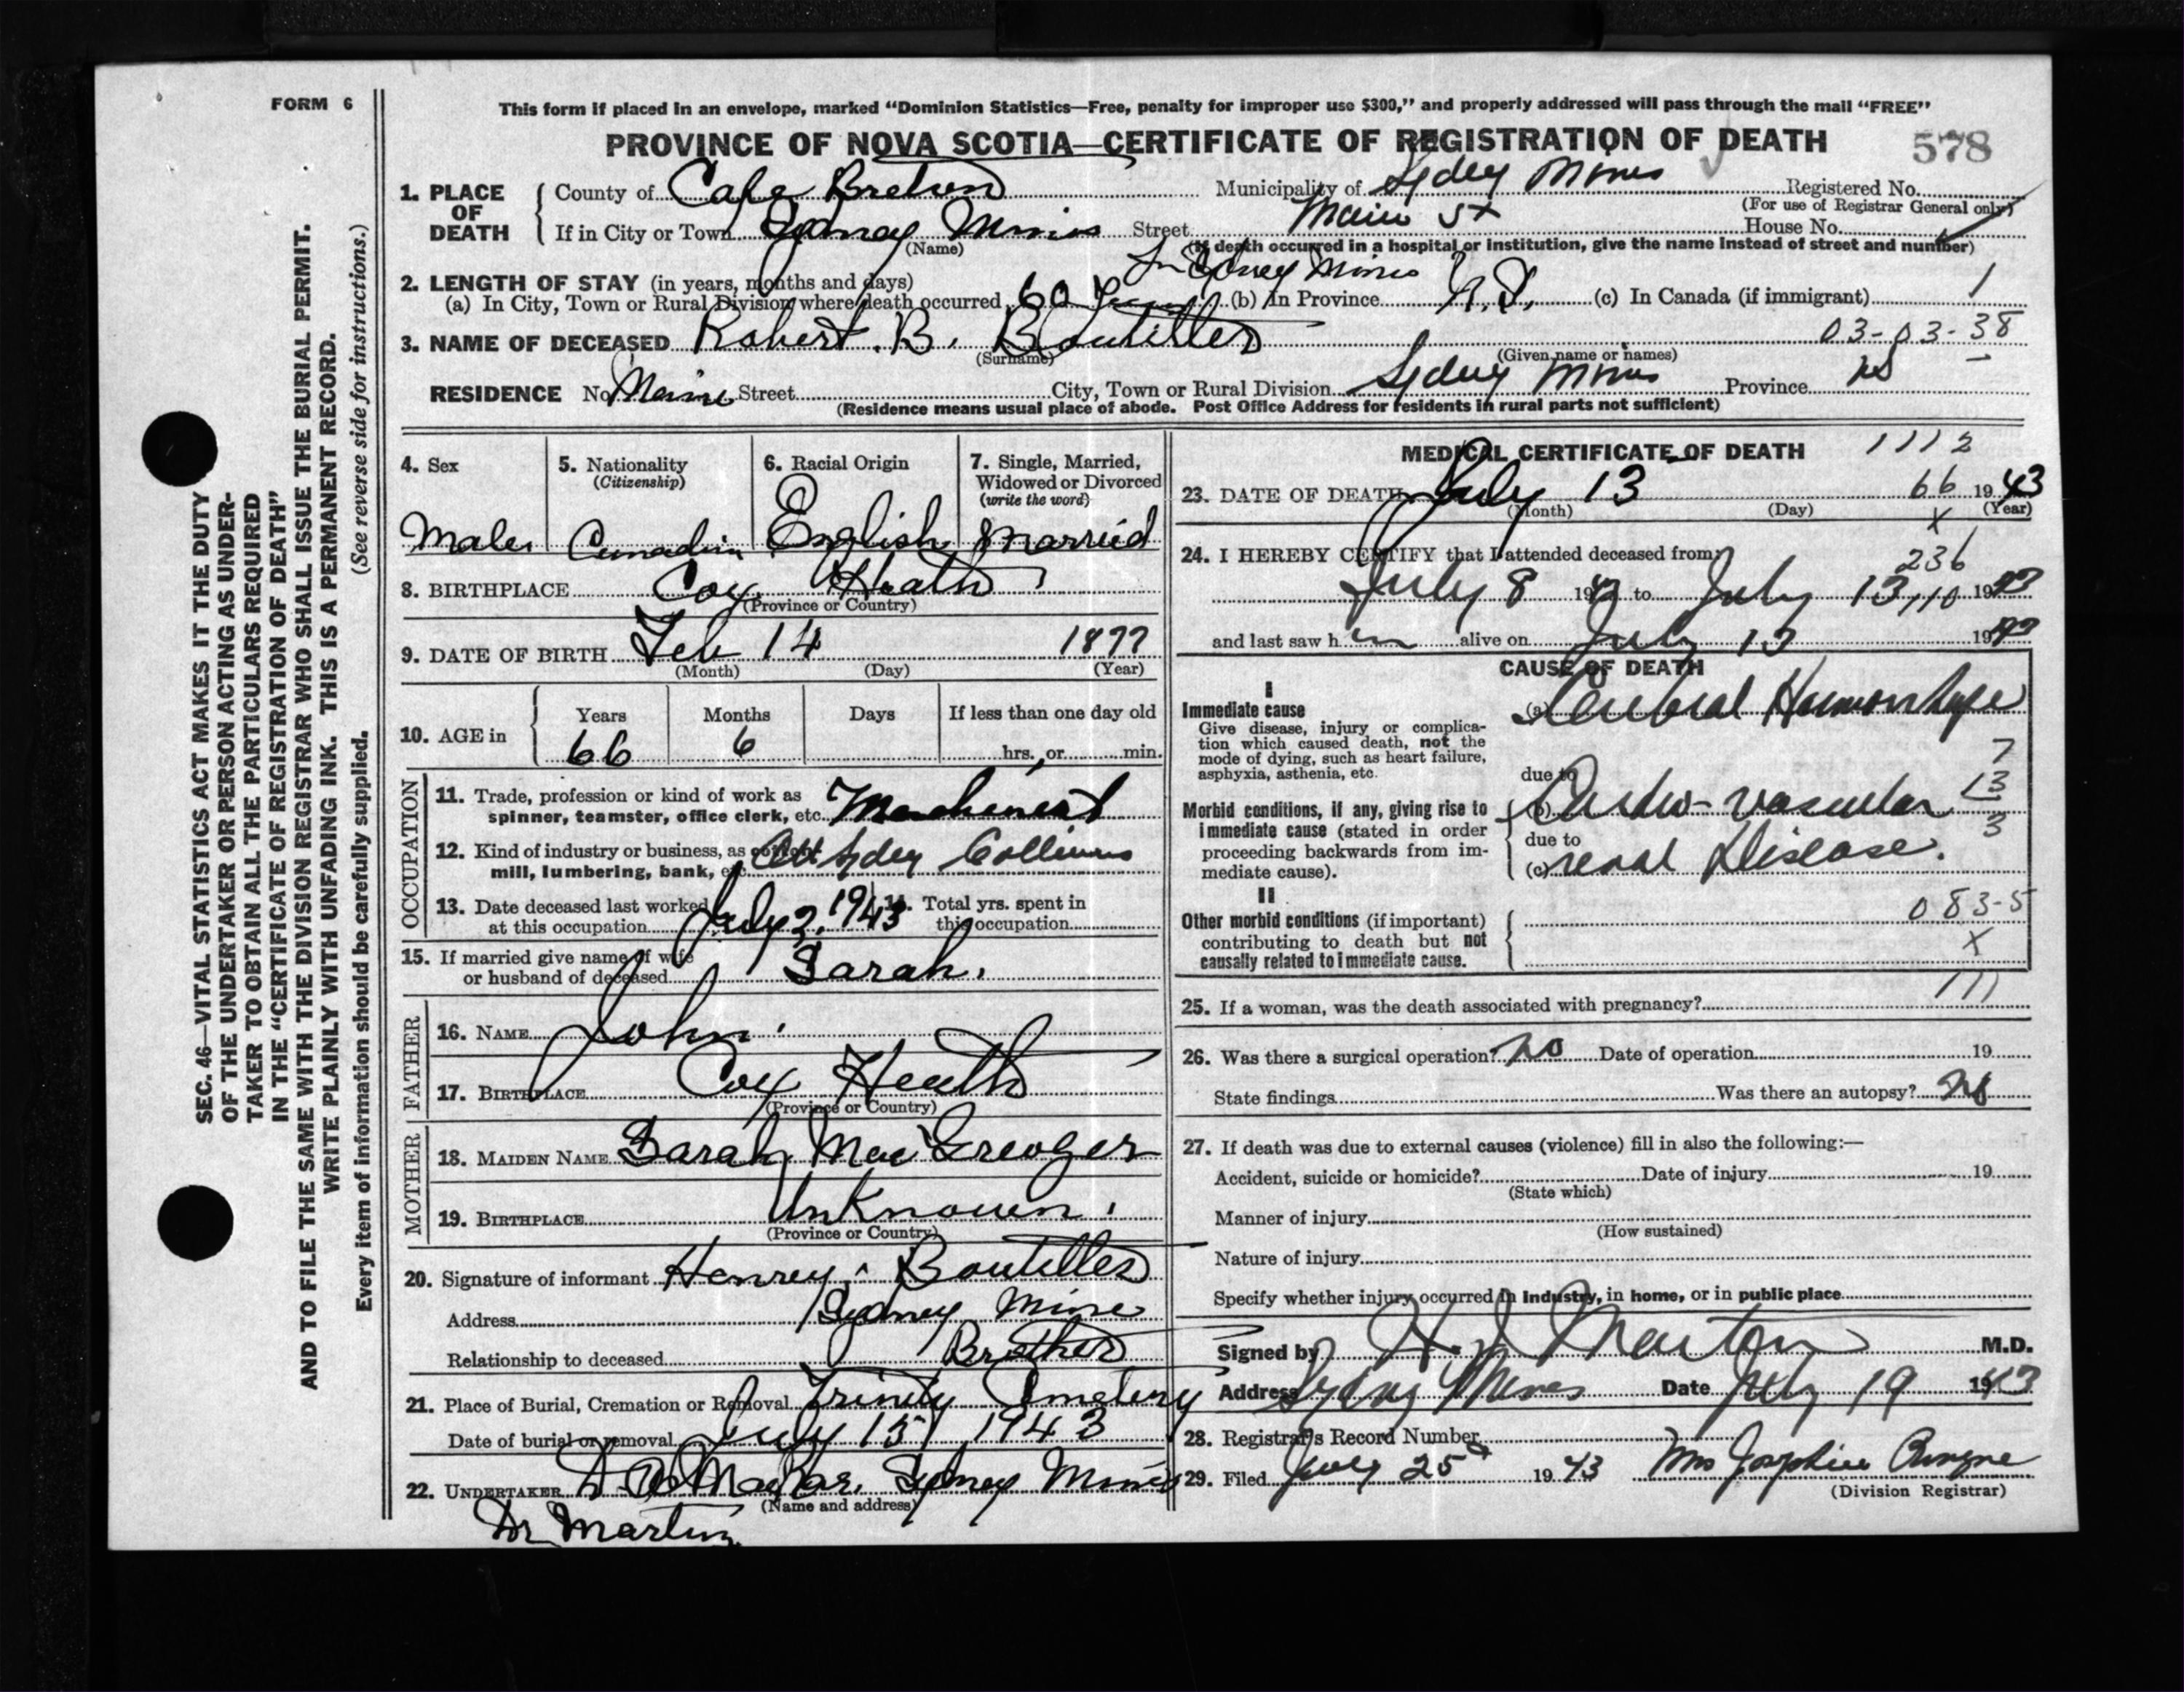 FORM 6
This form if placed in an envelope, marked “Dominion Statistics—Free, penalty for improper use $300,” and properly addressed will pass through the mail “FREE”
PROVINCE OF NOVA SCOTIA—CERTIFICATE OF REGISTRATION OF DEATH
578
1. PLACE OF DEATH
County of Cape Breton Municipality of Sydey Mines Registered No.
(For use of Registrar General only)
If in City or Town Sydney Mines Street Main St House No.
(Name) (If death occurred in a hospital or institution, give the name instead of street and number)
2. LENGTH OF STAY (in years, months and days) In Sydney Mines
(a) In City, Town or Rural Division where death occurred 60 Years (b) In Province N.S. (c) In Canada (if immigrant) 1
03-03-38
3. NAME OF DECEASED Robert. B. Boutilier
(Surname) (Given name or names)
RESIDENCE No. Main Street City, Town or Rural Division Sydney Mines Province NS
(Residence means usual place of abode. Post Office Address for residents in rural parts not sufficient)
4. Sex
Male
5. Nationality
(Citizenship)
Canadian
6. Racial Origin
English
7. Single, Married,
Widowed or Divorced
(write the word)
Married
8. BIRTHPLACE Cox Heath
(Province or Country)
9. DATE OF BIRTH Feb 14 1877
(Month) (Day) (Year)
10. AGE in
Years Months Days If less than one day old
66 6 hrs. or min.
OCCUPATION
11. Trade, profession or kind of work as
spinner, teamster, office clerk, etc. Machinest
12. Kind of industry or business, as cotton
mill, lumbering, bank, etc. Att Sydey Collieries
13. Date deceased last worked
at this occupation July 2, 1943
14. Total yrs. spent in
this occupation
15. If married give name of wife
or husband of deceased Sarah.
FATHER
16. NAME John.
17. BIRTHPLACE Cox Heath
(Province or Country)
MOTHER
18. MAIDEN NAME Sarah MacGreoger
19. BIRTHPLACE Unknown.
(Province or Country)
20. Signature of informant Henrey Boutilier
Address Sydney Mine
Relationship to deceased Brother
21. Place of Burial, Cremation or Removal Trinity Cmetery
Date of burial or removal July 15, 1943
22. UNDERTAKER Sydney Mines
(Name and address)
Dr Martin
MEDICAL CERTIFICATE OF DEATH 1112
23. DATE OF DEATH July 13 66 1943
(Month) (Day) (Year)
x
24. I HEREBY CERTIFY that I attended deceased from:
236
July 8 1943 to July 13, 110 1943
and last saw him alive on July 13 1943
CAUSE OF DEATH
I
Immediate cause
Give disease, injury or complica-
tion which caused death, not the
mode of dying, such as heart failure,
asphyxia, asthenia, etc.
(a) Cerebral Hemorrhage
7
due to
Morbid conditions, if any, giving rise to
immediate cause (stated in order
proceeding backwards from im-
mediate cause).
(b) Cardio-vascular 13
due to 3
(c) renal Disease.
II
Other morbid conditions (if important)
contributing to death but not
causally related to immediate cause.
083-5
X
111
25. If a woman, was the death associated with pregnancy?
26. Was there a surgical operation? No Date of operation 19
State findings Was there an autopsy? No
27. If death was due to external causes (violence) fill in also the following:—
Accident, suicide or homicide? Date of injury 19
(State which)
Manner of injury
(How sustained)
Nature of injury
Specify whether injury occurred in Industry, in home, or in public place
Signed by H. J. Martin M.D.
Address Sydney Mines Date July 19 1943
28. Registrar's Record Number
29. Filed July 25th 1943 Mrs Josephine
(Division Registrar)
SEC. 46—VITAL STATISTICS ACT MAKES IT THE DUTY
OF THE UNDERTAKER OR PERSON ACTING AS UNDER-
TAKER TO OBTAIN ALL THE PARTICULARS REQUIRED
IN THE “CERTIFICATE OF REGISTRATION OF DEATH”
AND TO FILE THE SAME WITH THE DIVISION REGISTRAR WHO SHALL ISSUE THE BURIAL PERMIT.
WRITE PLAINLY WITH UNFADING INK. THIS IS A PERMANENT RECORD.
Every item of information should be carefully supplied. (See reverse side for instructions.)